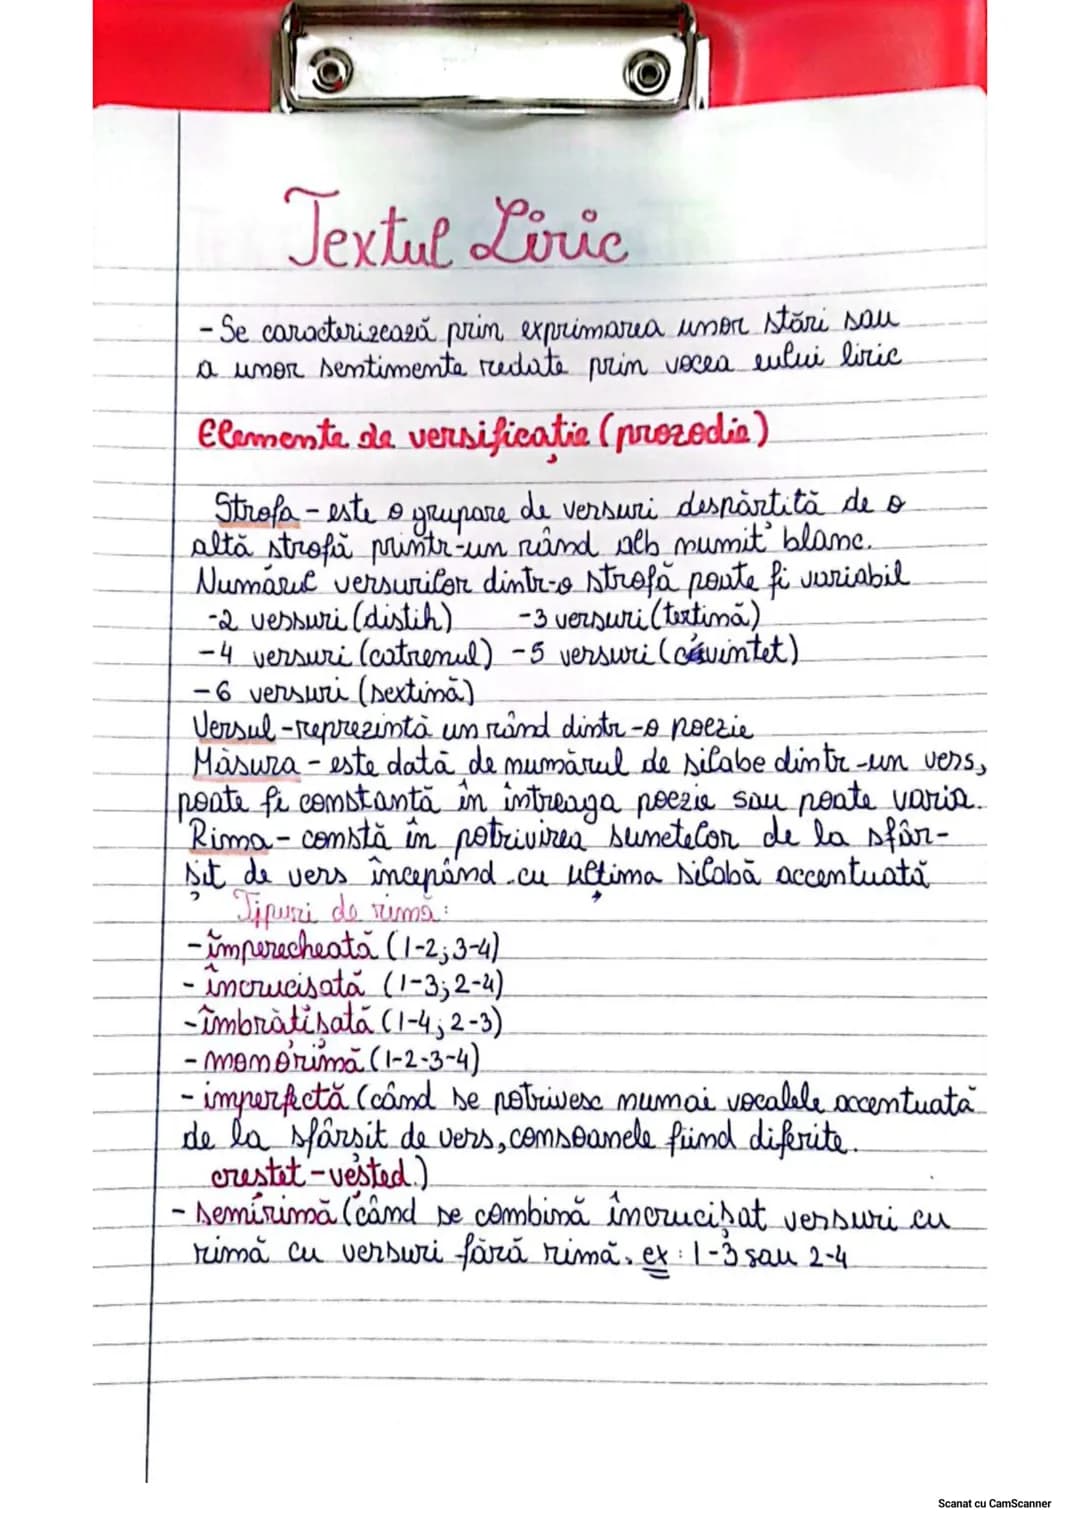 Textul Liric
- Se caracterizează prin exprimarea unor stări sau
a unor sentimente redate prin vocea eului liric
Elemente de versificație (prozodie)
Strofa - este o grupare de versuri despărțită de o
altă strofă printr-un rând alb numit blanc.
Numărul versurilor dintr-o strofă poate fi variabil
-2 versuri (distih) -3 versuri (terțină)
-4 versuri (catrenul) -5 versuri (cvintet)
-6 versuri (sextină)
Versul - reprezintă un rând dintr-o poezie
Măsura - este dată de numărul de silabe dintr-un vers,
poate fi constantă în întreaga poezie sau poate varia.
Rima - constă în potrivirea sunetelor de la sfâr-
șit de vers începând cu ultima silabă accentuată
Tipuri de rimă:
- împerecheată (1-2; 3-4)
- încrucișată (1-3; 2-4)
- îmbrățișată (1-4; 2-3)
- monorimă (1-2-3-4)
- imperfectă (când se potrivesc numai vocalele accentuată
de la sfârșit de vers, consoanele fiind diferite.
creștet - veșted.)
- semirimă (când se combină încrucișat versuri cu
rimă cu versuri fără rimă. ex: 1-3 sau 2-4
Scanat cu CamScanner